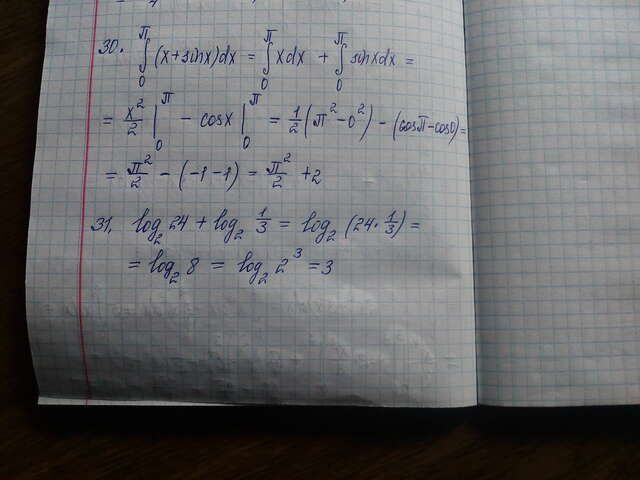 30. ∫₀^π (x+sinx)dx = ∫₀^π xdx + ∫₀^π sinxdx =
= x²/2 |₀^π - cosx |₀^π = 1/2 (π²-0²) - (cosπ-cos0) =
= π²/2 - (-1-1) = π²/2 +2
31. log₂ 24 + log₂ 1/3 = log₂ (24·1/3) =
= log₂ 8 = log₂ 2³ = 3